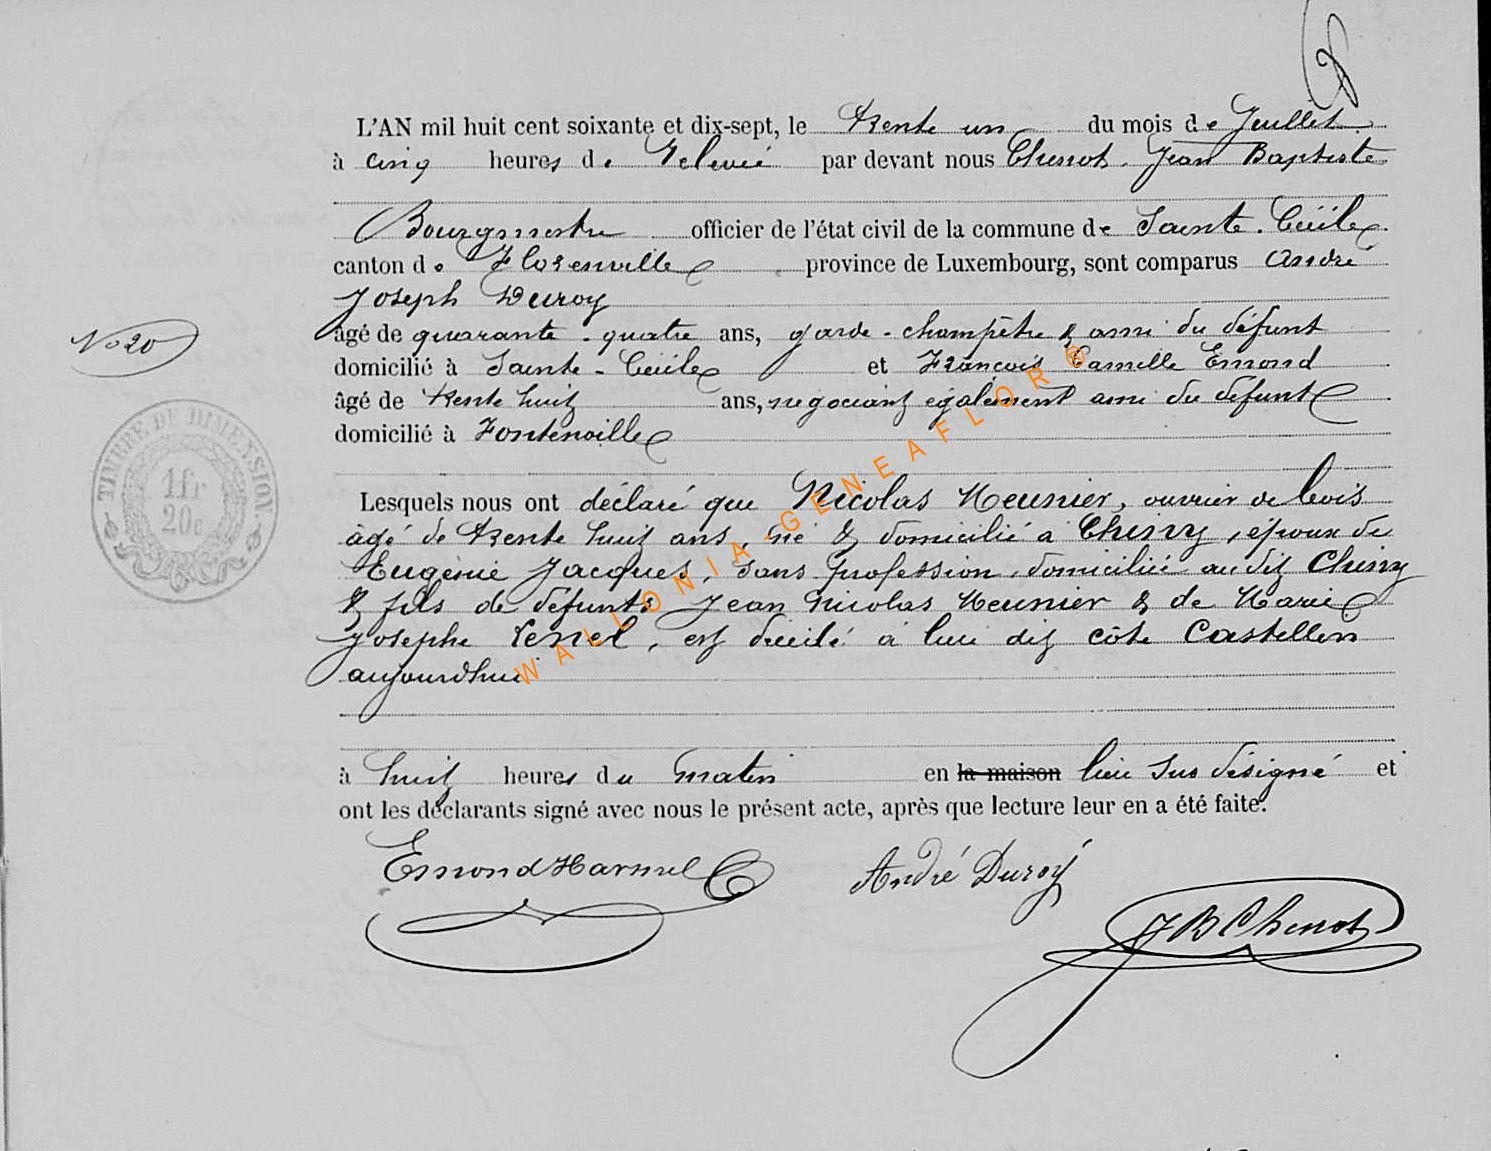 8
L'AN mil huit cent soixante et dix-sept, le Trente un du mois de Juillet
à cinq heures de Relevée par devant nous Chenot Jean Baptiste
Bourgmestre officier de l'état civil de la commune de Sainte-Cécile
canton de Florenville province de Luxembourg, sont comparus André
Joseph Duroy
âgé de quarante-quatre ans, garde-champêtre & ami du défunt
domicilié à Sainte-Cécile et François Camille Emond
N° 20
âgé de trente huit ans, négociant également ami du défunt
domicilié à Fontenoille
Lesquels nous ont déclaré que Nicolas Meunier, ouvrier de bois
âgé de Trente huit ans, né & domicilié à Chiny, époux de
Eugénie Jacques, sans profession, domiciliée au dit Chiny
& fils de défunts Jean Nicolas Meunier & de Marie
Josephe, est décédé à lieu dit côte Castellin
aujourd'hui
à huit heures du matin en la maison lieu sus désigné et
ont les déclarants signé avec nous le présent acte, après que lecture leur en a été faite.
Emond Harmel André Duroy
JB Chenot
TIMBRE DE DIMENSION
1fr
20c
WALLONIA-GENEAFLOR®